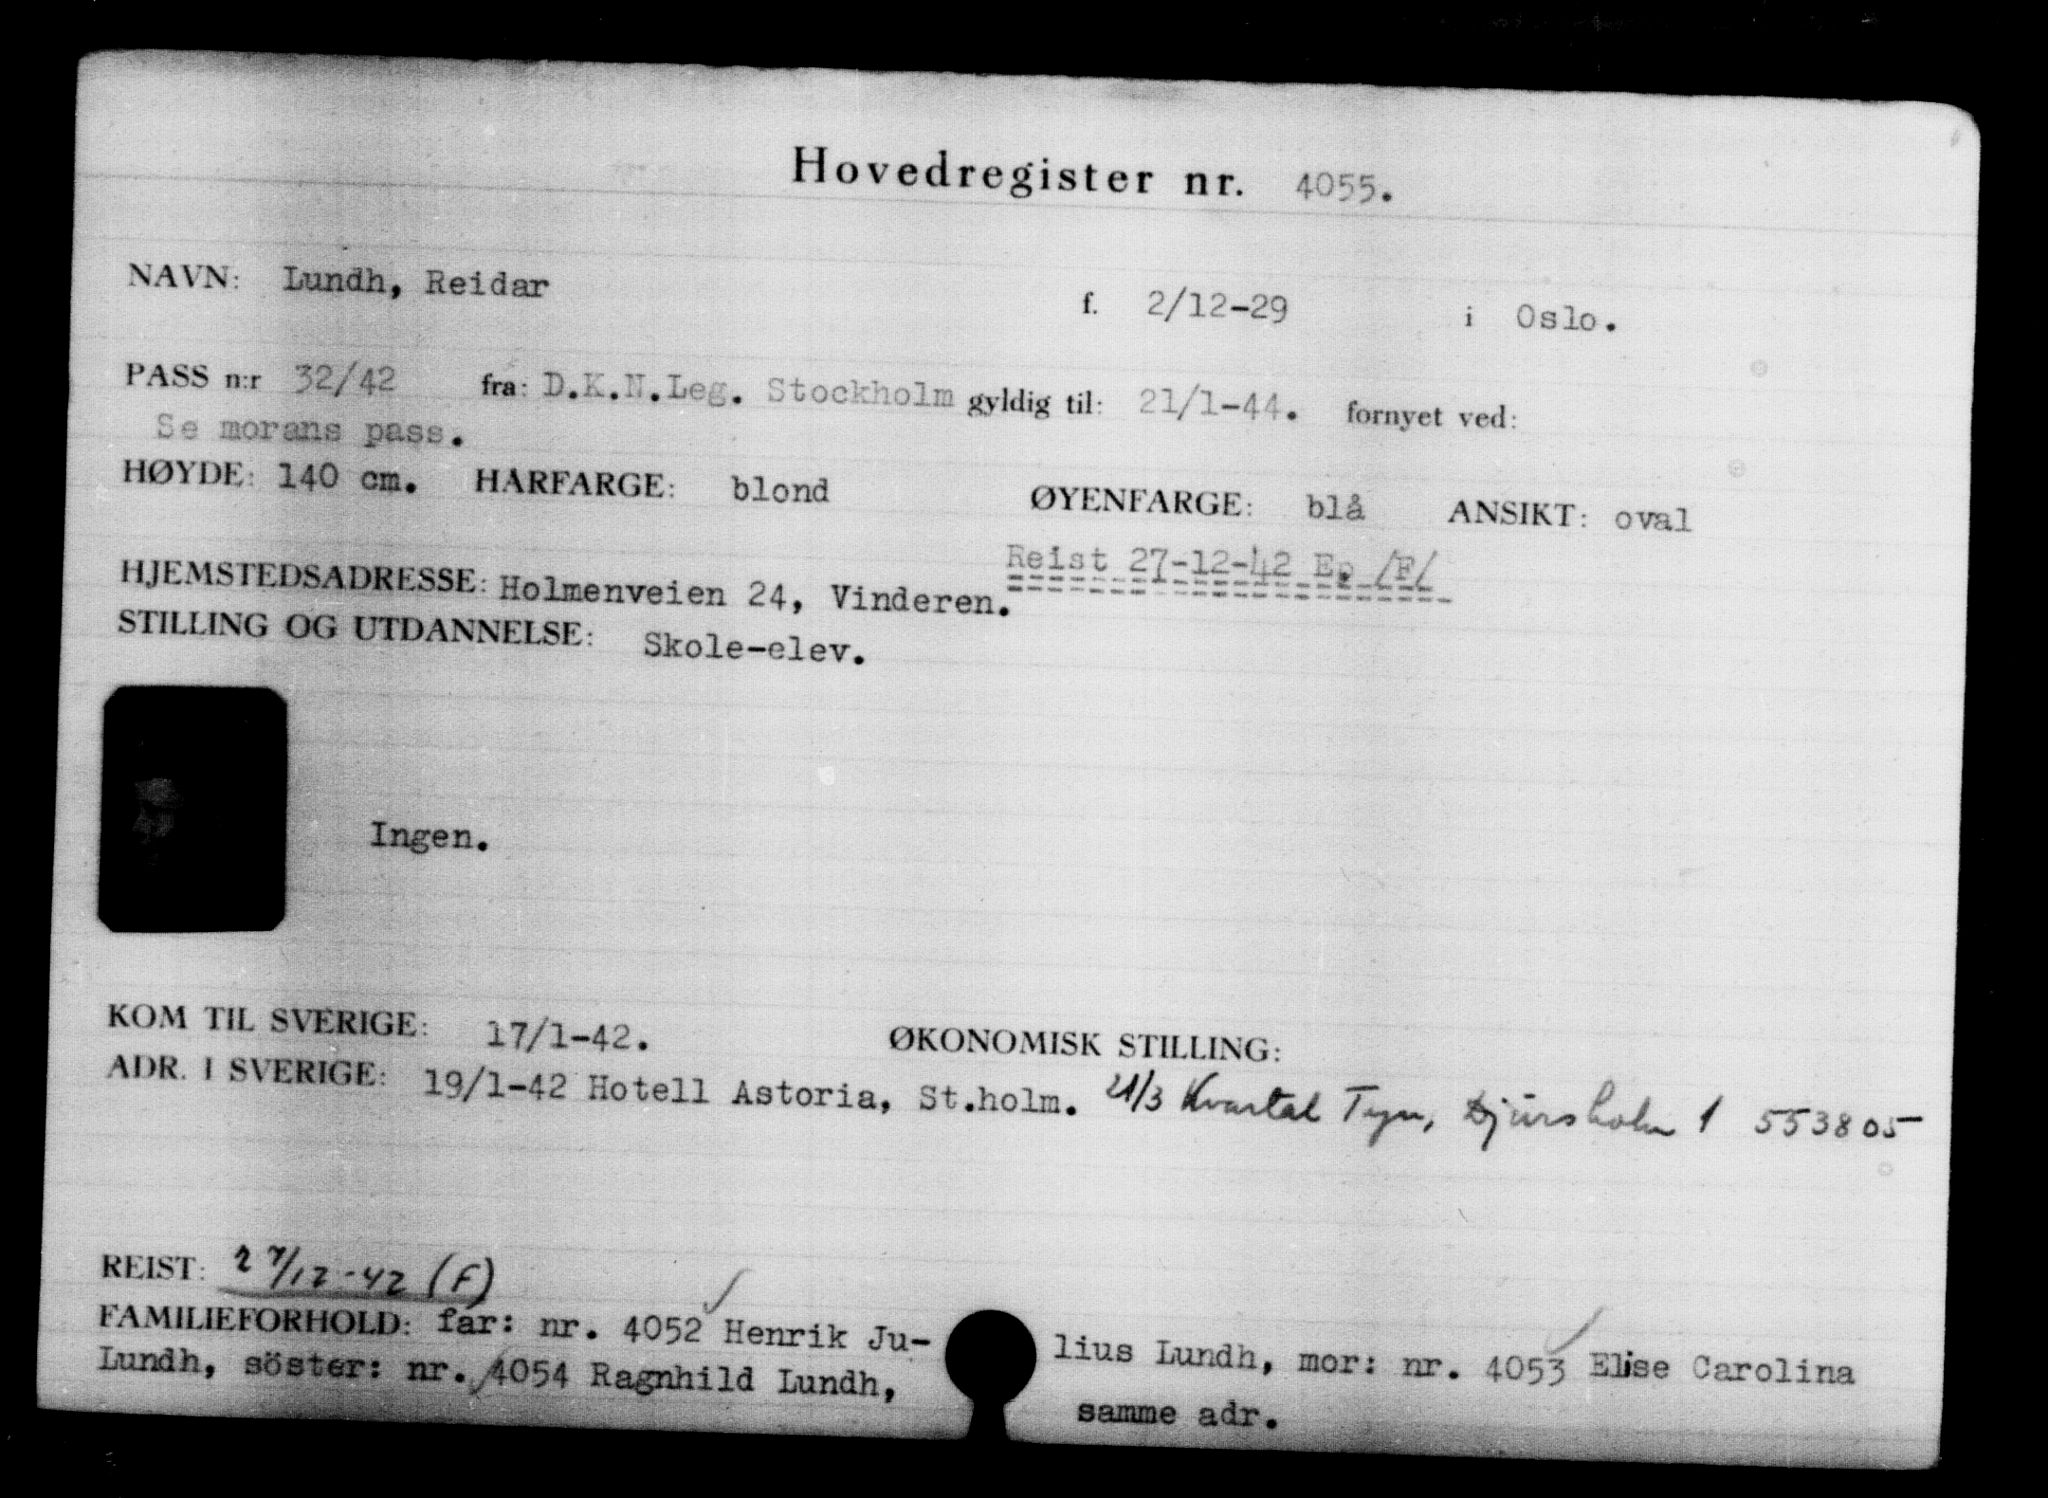 Hovedregister nr. 4055.
NAVN: Lundh, Reidar f. 2/12-29 i Oslo.
PASS n:r 32/42 fra: D.K.N.Leg. Stockholm gyldig til: 21/1-44. fornyet ved:
Se morans pass.
HØYDE: 140 cm. HARFARGE: blond ØYENFARGE: blå ANSIKT: oval
Reist 27-12-42 Ep /F/
HJEMSTEDSADRESSE: Holmenveien 24, Vinderen.
STILLING OG UTDANNELSE: Skole-elev.
Ingen.
KOM TIL SVERIGE: 17/1-42. ØKONOMISK STILLING:
ADR. I SVERIGE: 19/1-42 Hotell Astoria, St.holm. 21/3 Kvartal Tyr, Djursholm 1 553805
REIST: 27/12-42 (F)
FAMILIEFORHOLD: far: nr. 4052 Henrik Ju- lius Lundh, mor: nr. 4053 Elise Carolina
Lundh, söster: nr. 4054 Ragnhild Lundh, samme adr.